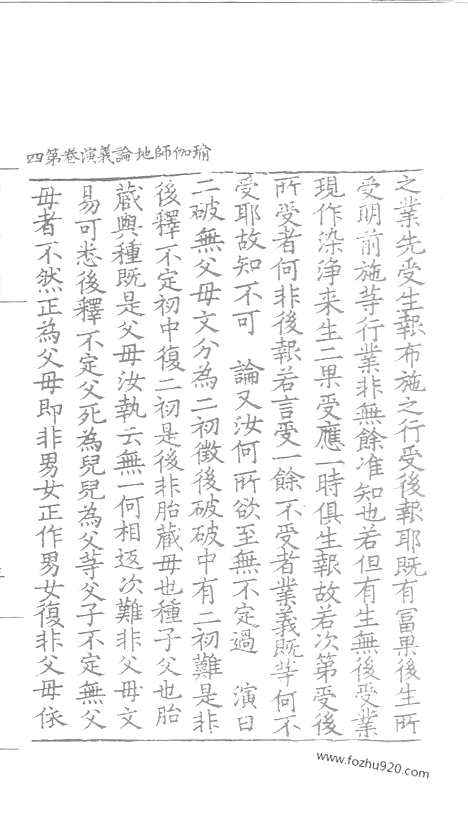 瑜伽師地論義演卷第四
之業先受生報布施之行受後報耶既有冨果後生所
受明前施等行業非無餘准知也若但有生無後受業
現作染淨来生二果受應一時俱生報故若次第受後
所受者何非後報若言受一餘不受者業義既等何不
受耶故知不可　論又汝何所欲至無不定過　演曰
二破無父母文分為二初徵後破破中有二初難是非
後釋不定初中復二初是後非胎蔵母也種子父也胎
蔵與種既是父母汝執云無一何相返次難非父母文
易可悉後釋不定父死為兒兒為父等父子不定無父
母者不然正為父母即非男女正作男女復非父母依
www.fozhu920.com